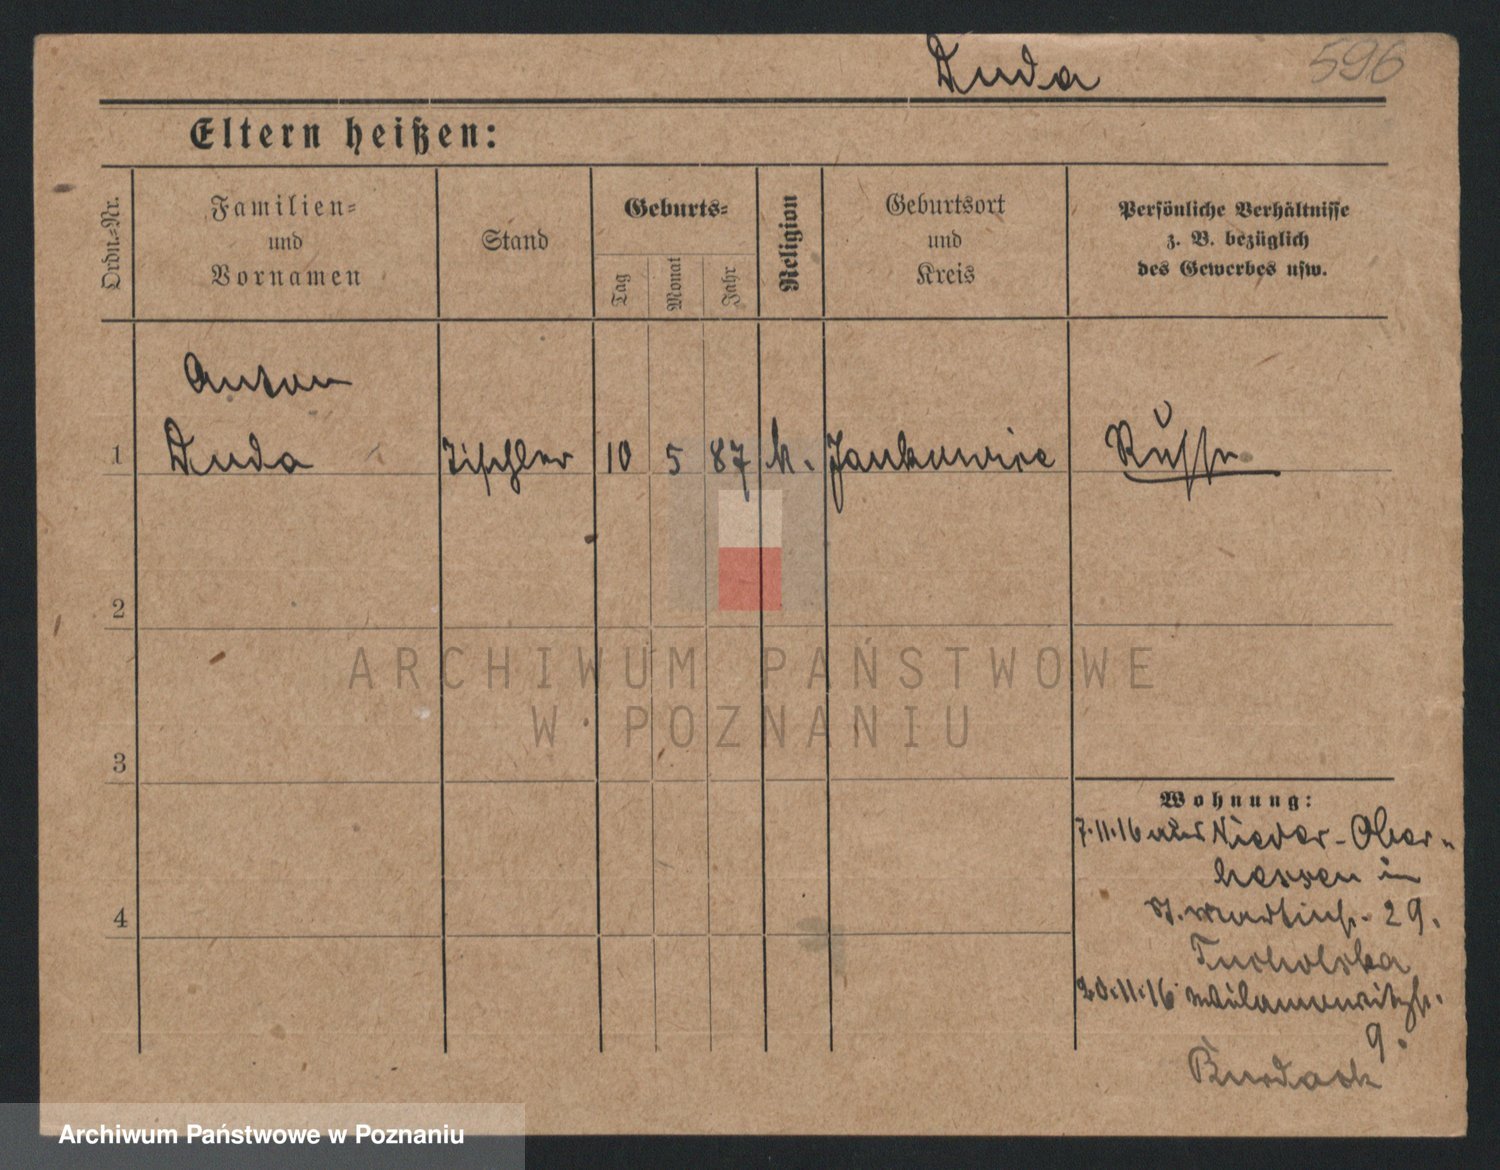 Duda
596
Eltern heißen:
Ordn.=Nr.
Familien=
und
Vornamen
Stand
Geburts=
Tag
Monat
Jahr
Religion
Geburtsort
und
Kreis
Persönliche Verhältnisse
z. B. bezüglich
des Gewerbes usw.
Anton
1 Duda Tischler 10 5 87 k. Jankowice Russe
2
3
4
Wohnung:
7.11.16 aus Nieder-Ober-
hessen in
St. Martinstr. 29.
Tucholska
20.11.16 Wilamowitzstr.
9.
Burdack
ARCHIWUM PAŃSTWOWE
W POZNANIU
Archiwum Państwowe w Poznaniu